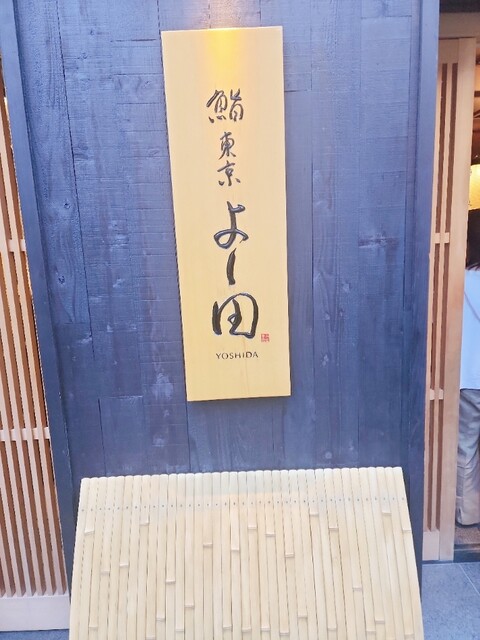 鮨
東京
よし田
YOSHIDA